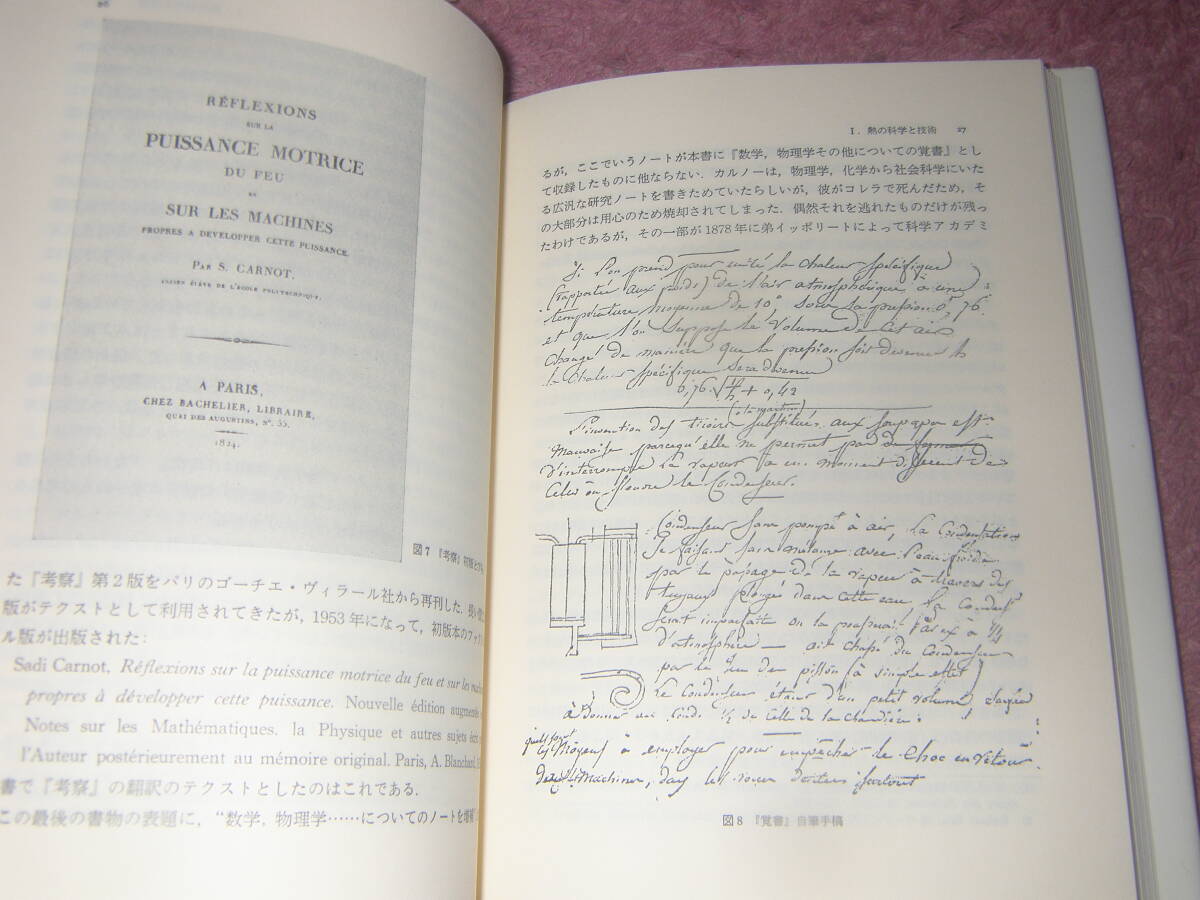 26
RÉFLEXIONS
SUR LA
PUISSANCE MOTRICE
DU FEU
ET
SUR LES MACHINES
PROPRES A DÉVELOPPER CETTE PUISSANCE.
PAR S. CARNOT,
ANCIEN ÉLÈVE DE L'ÉCOLE POLYTECHNIQUE.
A PARIS,
CHEZ BACHELIER, LIBRAIRE,
QUAI DES AUGUSTINS, Nº. 55.
1824.
図7 『考察』初版
た『考察』第2版をパリのゴーチエ・ヴィラール社から再刊した.
版がテクストとして利用されてきたが,1953年になって,初版本の
ル版が出版された:
Sadi Carnot, Réflexions sur la puissance motrice du feu et sur les
propres à développer cette puissance. Nouvelle édition augmentée
Notes sur les Mathématiques, la Physique et autres sujets
l'Auteur postérieurement au mémoire original. Paris, A. Blanchard,
書で『考察』の翻訳のテクストとしたのはこれである.
この最後の書物の表題に,“数学,物理学……についてのノートを
I. 熱の科学と技術 27
るが,ここでいうノートが本書に『数学,物理学その他についての覚書』とし
て収録したものに他ならない.カルノーは,物理学,化学から社会科学にいた
る広汎な研究ノートを書きためていたらしいが,彼がコレラで死んだため,そ
の大部分は用心のため焼却されてしまった.偶然それを逃れたものだけが残っ
たわけであるが,その一部が1878年に弟イッポリートによって科学アカデミ
Si l'on prend pour unité la chaleur spécifique
(rapportée aux poids) de l'air atmosphérique à une
température moyenne de 10°, sous la pression 0,76
et que l'on suppose le volume de cet air
changé de manière que la pression soit devenue h
la chaleur spécifique sera devenue
L'invention des tiroirs substitués aux soupapes est
mauvaise parcequ'elle ne permet pas
d'interrompre la vapeur à un moment différent de
celui où s'ouvre le Condenseur.
Condenseur sans pompe à air, la Condensation
se faisant sans mélange avec l'eau froide
par le passage de la vapeur à travers des
tuyaux plongés dans cette eau. la Condens
serait imparfait on la
d'atmosphère — air chassé du Condenseur
par le jeu du piston à simple effet
le Condenseur étant d'un petit volume
à donner au Cond. 1/2 de celle de la chaudière
quels sont
les moyens à employer pour empêcher le choc en retour
Machines, dans les roues dentées surtout
図8 『覚書』自筆手稿